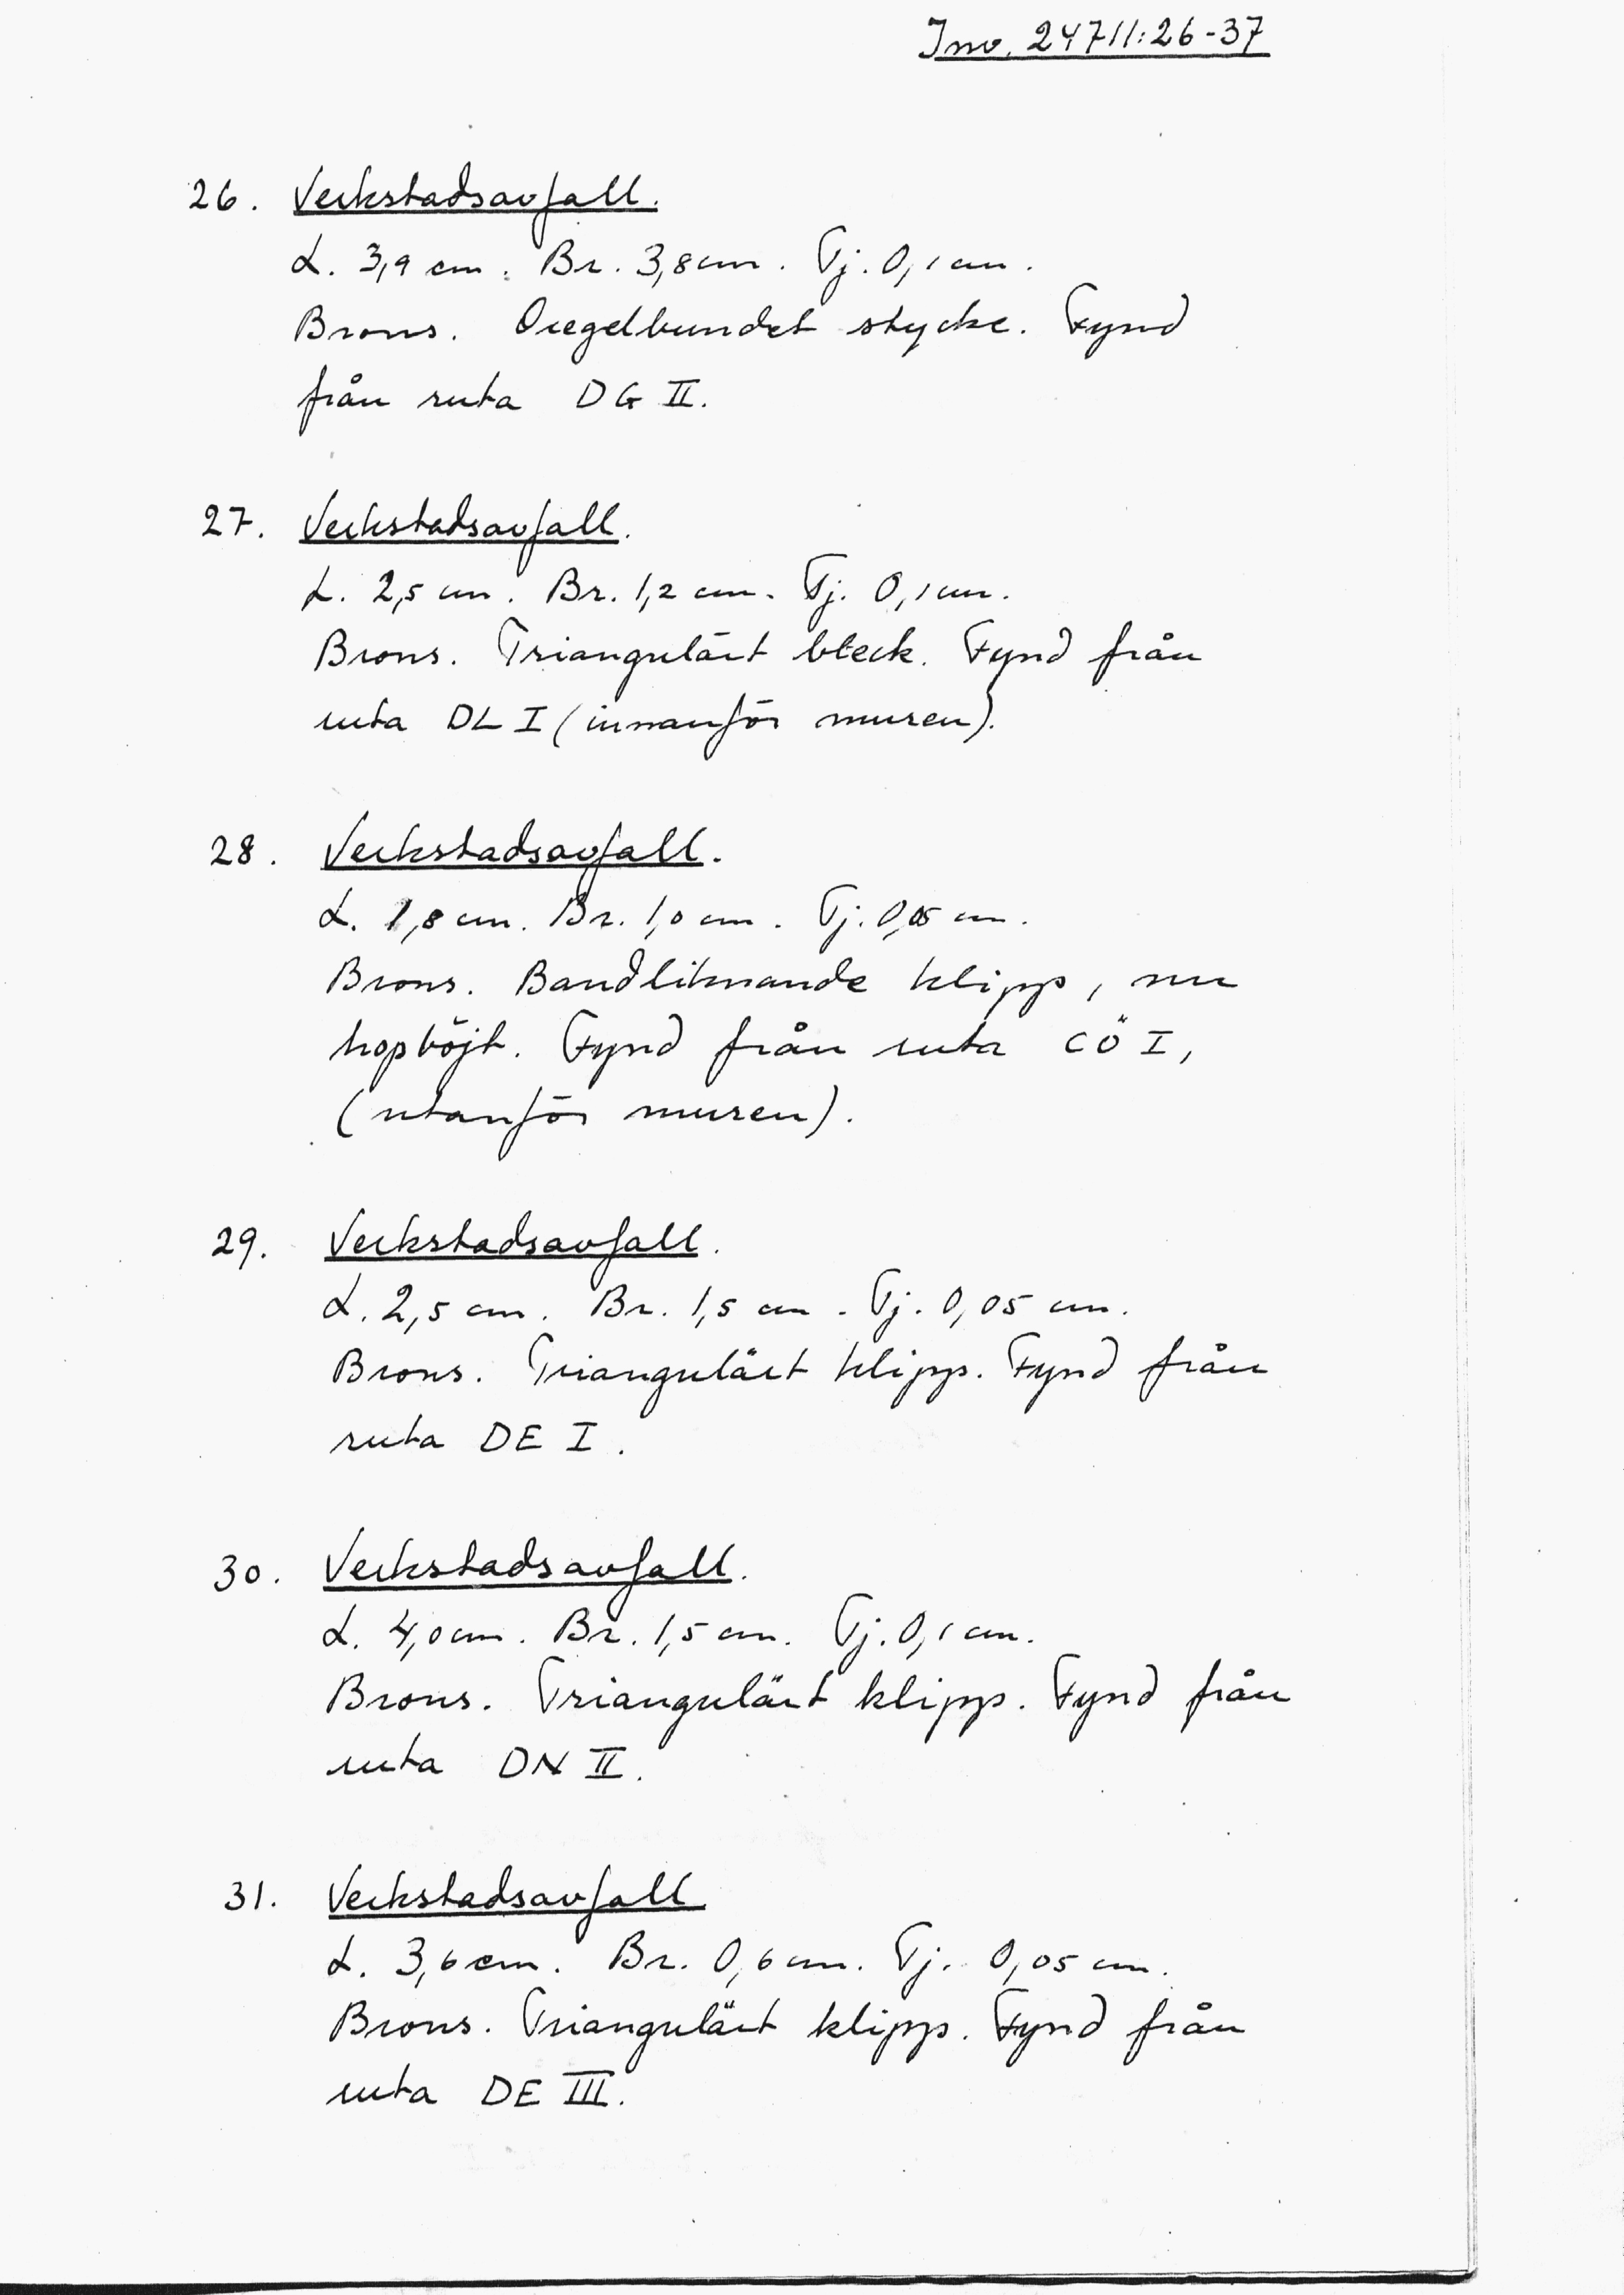 Inv. 24711:26-37
26. Verkstadsavfall.
L. 3,9 cm. Br. 3,8 cm. Tj. 0,1 cm.
Brons. Oregelbundet stycke. Fynd
från ruta DG II.
27. Verkstadsavfall.
L. 2,5 cm. Br. 1,2 cm. Tj. 0,1 cm.
Brons. Triangulärt bleck. Fynd från
ruta DL I (innanför muren).
28. Verkstadsavfall.
L. 1,8 cm. Br. 1,0 cm. Tj. 0,05 cm.
Brons. Bandliknande klipp, nu
hopböjt. Fynd från ruta CÖ I,
(utanför muren).
29. Verkstadsavfall.
L. 2,5 cm. Br. 1,5 cm. Tj. 0,05 cm.
Brons. Triangulärt klipp. Fynd från
ruta DE I.
30. Verkstadsavfall.
L. 4,0 cm. Br. 1,5 cm. Tj. 0,1 cm.
Brons. Triangulärt klipp. Fynd från
ruta DN II.
31. Verkstadsavfall
L. 3,6 cm. Br. 0,6 cm. Tj. 0,05 cm.
Brons. Triangulärt klipp. Fynd från
ruta DE III.